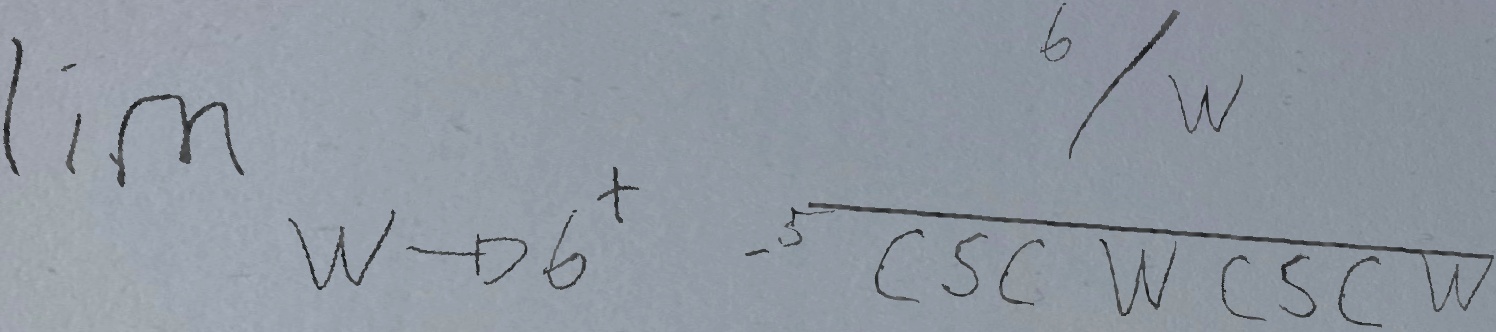 lim w→6⁺ (6/w) / (-5 csc w csc w)